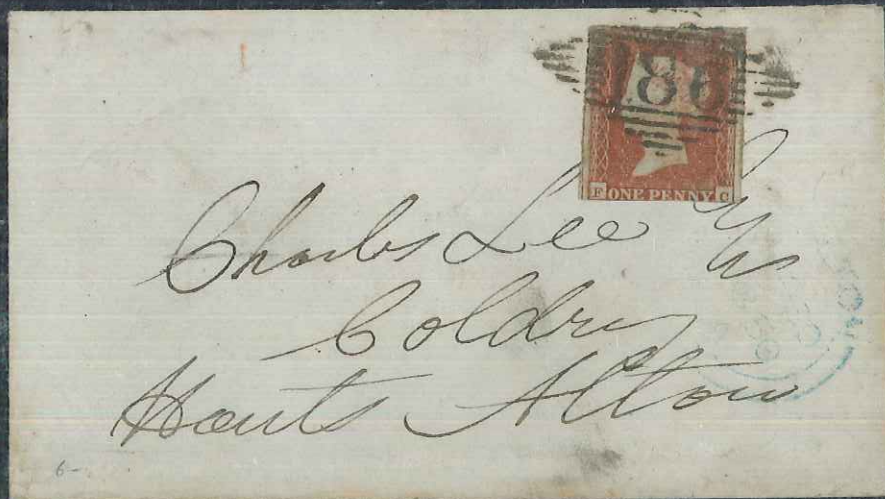 186
F ONE PENNY C
Charles Lee Esq
Coldrey
Hants Alton
6-